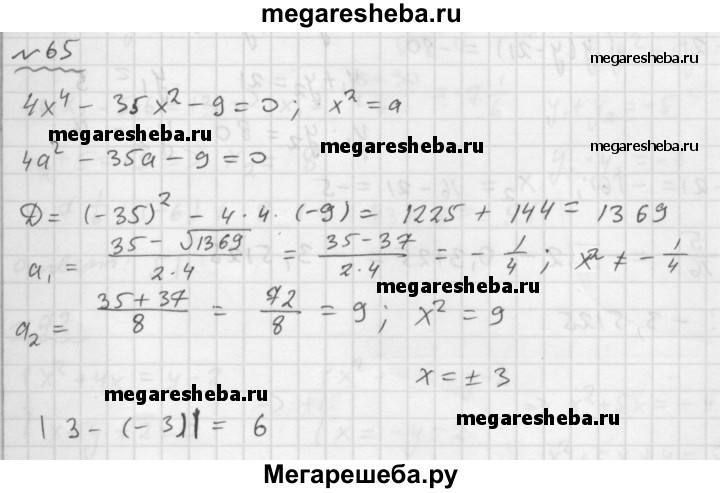 megaresheba.ru
№65
megaresheba.ru
4x⁴ - 35x² - 9 = 0; x² = a
megaresheba.ru
4a² - 35a - 9 = 0
megaresheba.ru megaresheba.ru
D = (-35)² - 4·4·(-9) = 1225 + 144 = 1369
a₁ = (35 - √1369)/(2·4) = (35-37)/(2·4) = -1/4; x² ≠ -1/4
megaresheba.ru megaresheba.ru
a₂ = (35+37)/8 = 72/8 = 9; x² = 9
x = ± 3
megaresheba.ru
megaresheba.ru
|3 - (-3)| = 6
Мегарешеба.ру